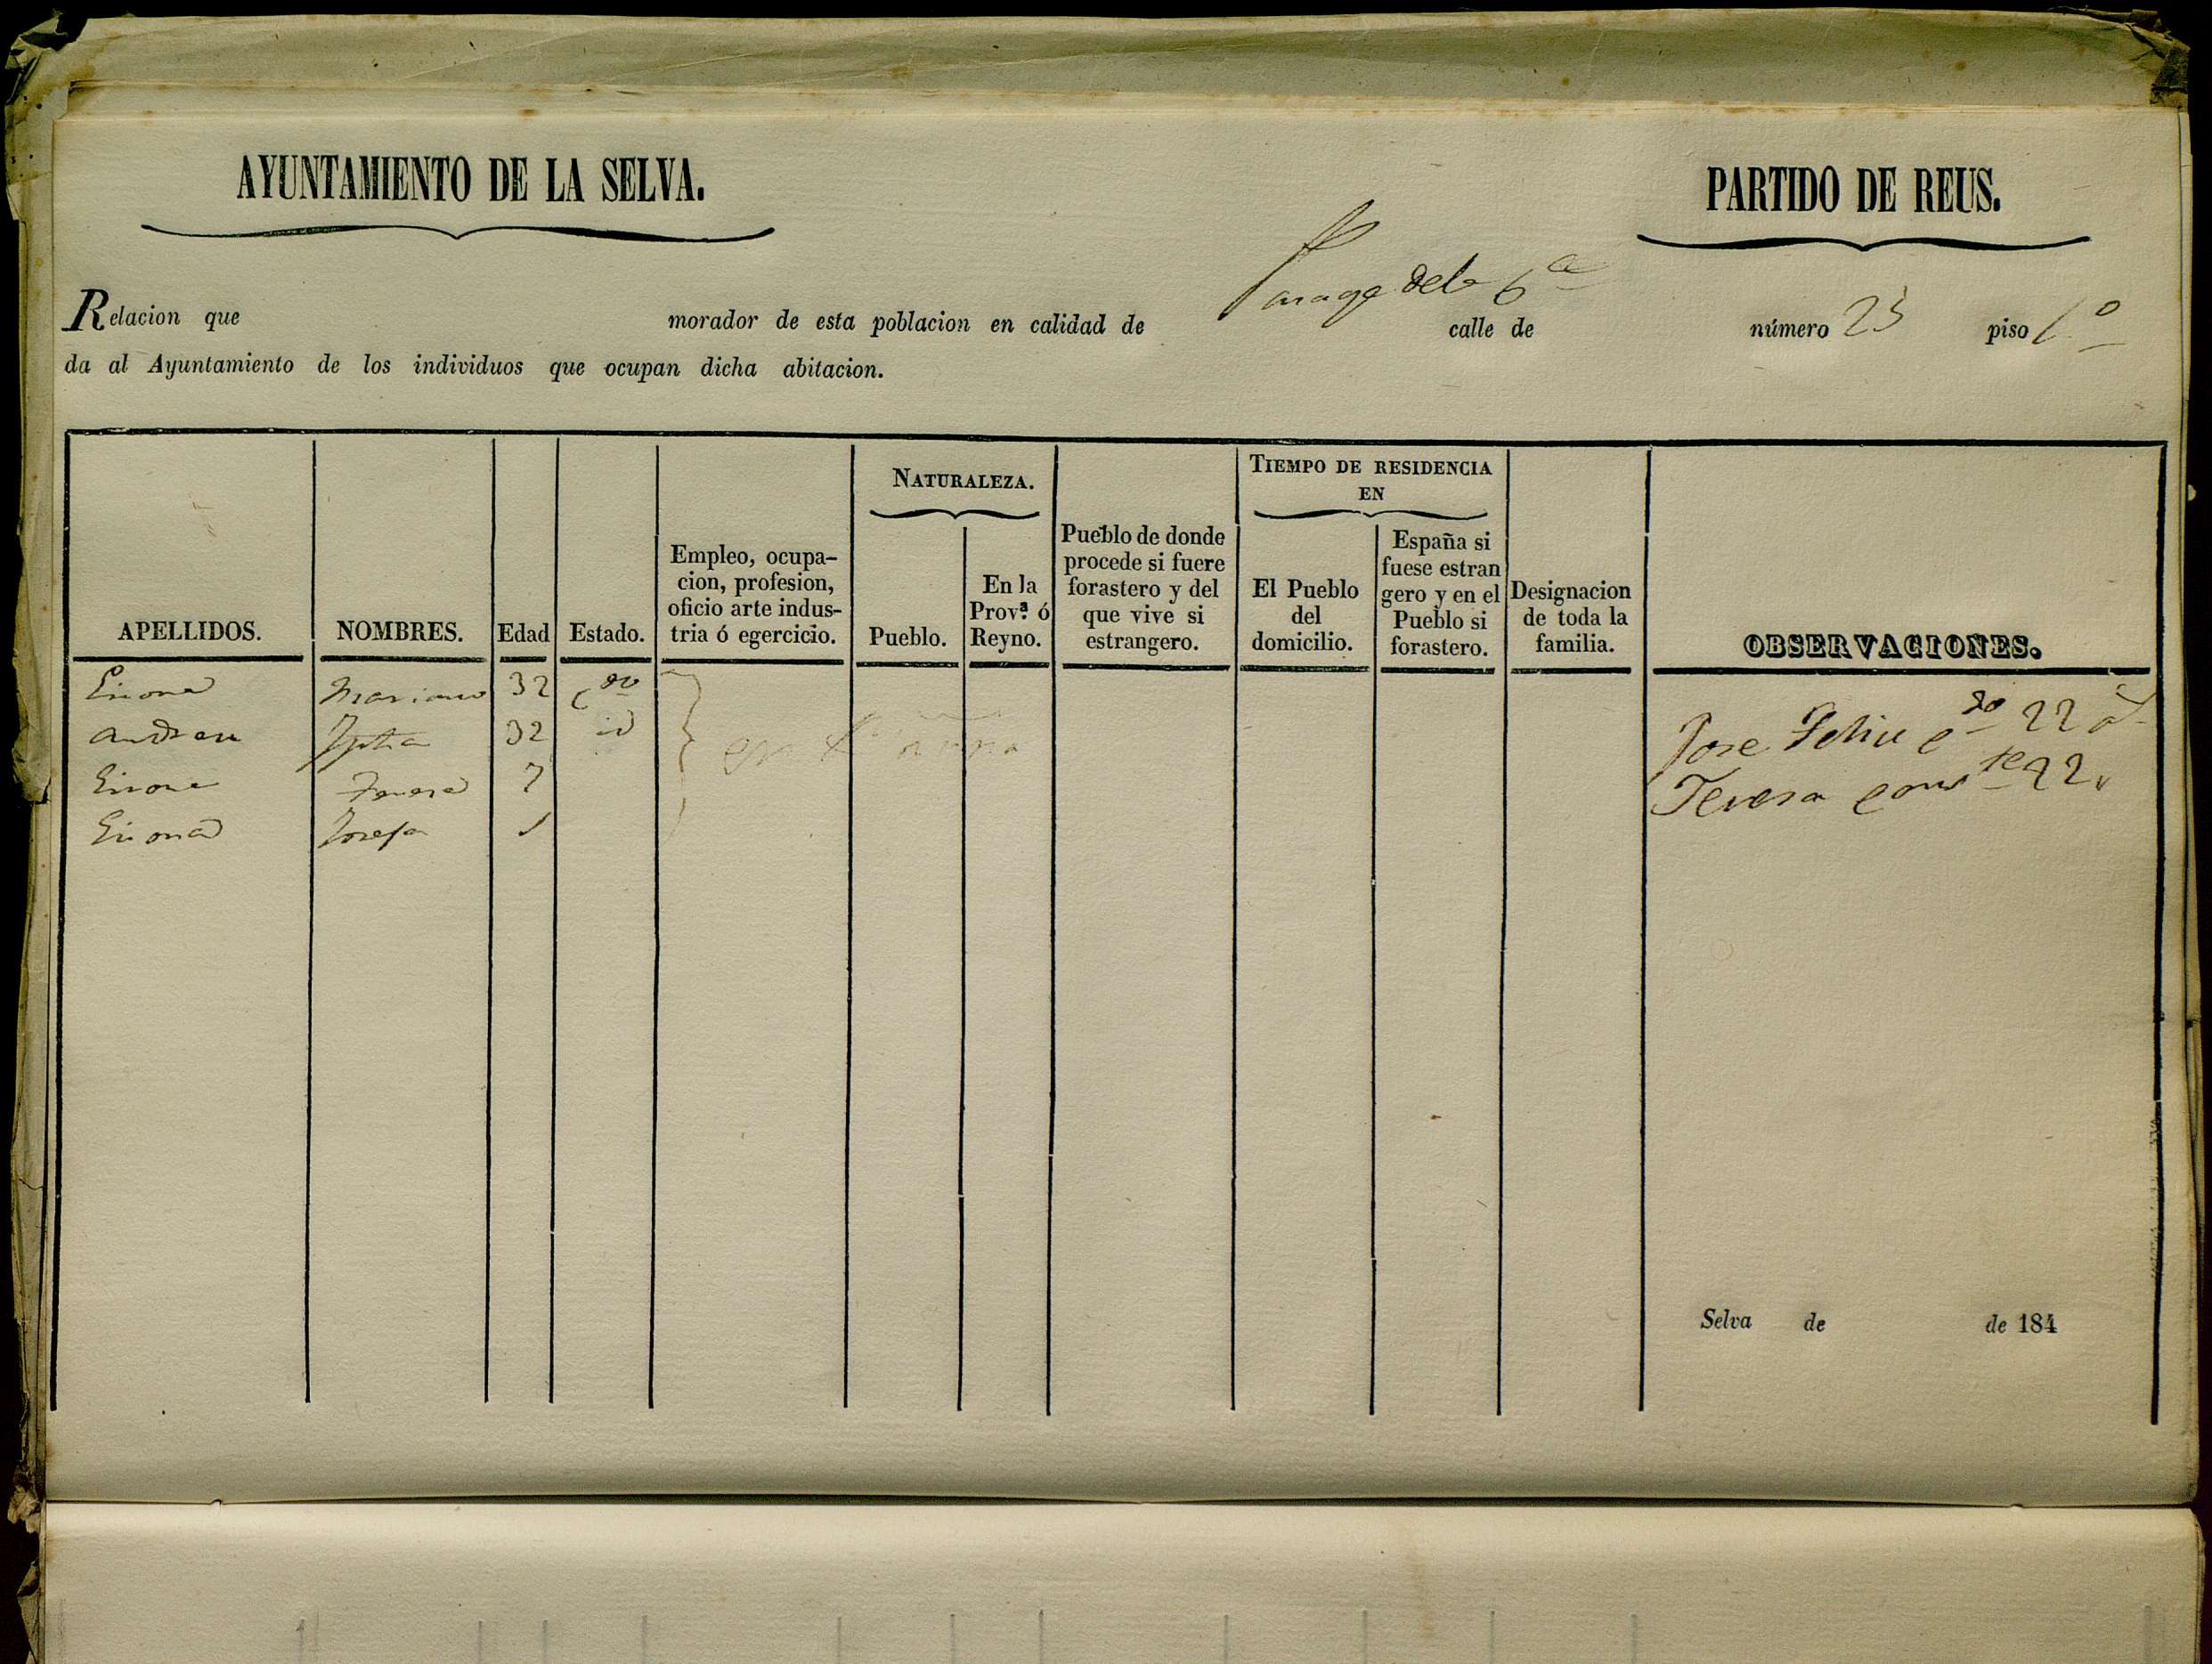 AYUNTAMIENTO DE LA SELVA.
PARTIDO DE REUS.
Relacion que morador de esta poblacion en calidad de calle de número 23 piso 1º
da al Ayuntamiento de los individuos que ocupan dicha abitacion.
APELLIDOS.
NOMBRES.
Edad
Estado.
Empleo, ocupa-
cion, profesion,
oficio arte indus-
tria ó egercicio.
NATURALEZA.
Pueblo.
En la
Prov.ª ó
Reyno.
Pueblo de donde
procede si fuere
forastero y del
que vive si
estrangero.
TIEMPO DE RESIDENCIA
EN
El Pueblo
del
domicilio.
España si
fuese estran
gero y en el
Pueblo si
forastero.
Designacion
de toda la
familia.
OBSERVACIONES.
Mariano 32 cdo
Andreu 32 id
Teresa 7
Josefa 1
Jose Feliu cdo 22 a
Teresa conste 22 "
Selva de de 184